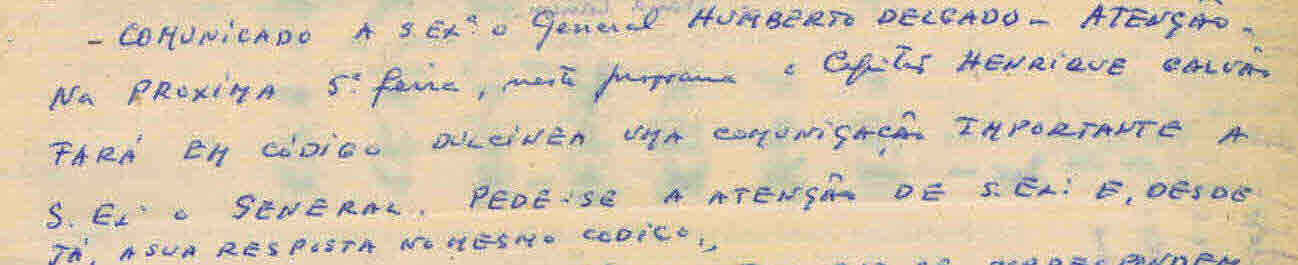 - COMUNICADO A S. EXª o General HUMBERTO DELGADO - ATENÇÃO -
Na PROXIMA 5ª feira, neste programa o Capitão HENRIQUE GALVÃO
FARÁ EM CÓDIGO DULCÍNEA UMA COMUNICAÇÃO IMPORTANTE A
S. EXª o GENERAL. PEDE-SE A ATENÇÃO DE S. EXª E, DESDE
JÁ, A SUA RESPOSTA NO MESMO CODIGO.
CORRESPONDEM